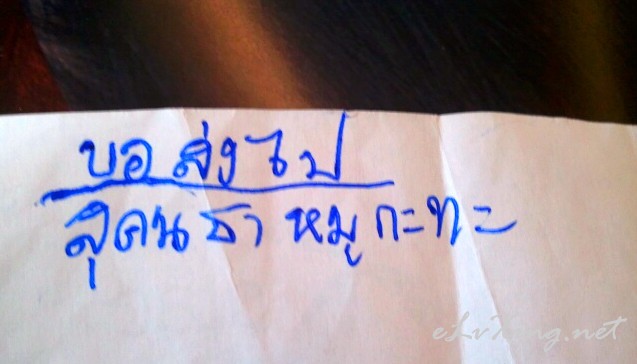 ขอ ส่ง ไป
สุคนธา หมูกะทะ